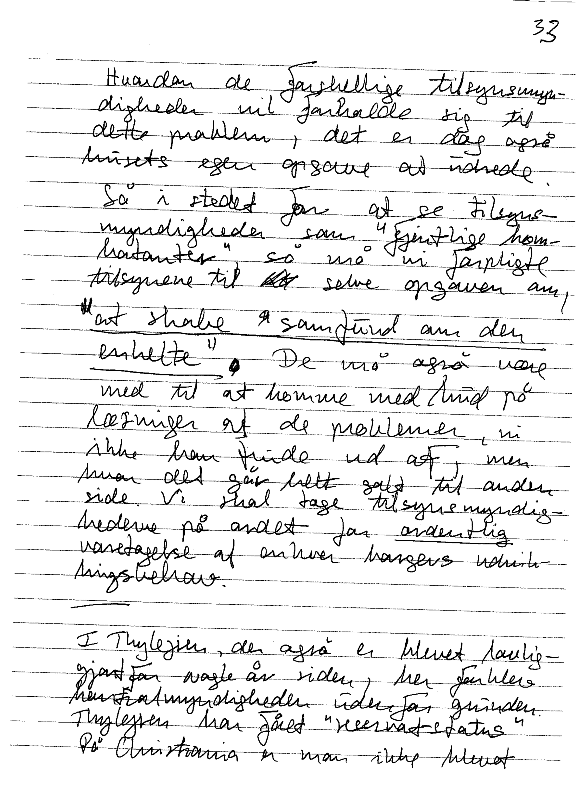 33
Hvordan de forskellige tilsynsmyn-
digheder vil forholde sig til
dette problem, det er dog også
husets egen opgave at udrede.
Så i stedet for at se tilsyns-
myndigheder som "fjentlige kom-
batanter", så må vi forpligte
tilsynene til selve opgaven om,
"at skabe "samfund om den
enkelte". De må også være
med til at komme med bud på
løsninger af de problemer, vi
ikke kan finde ud af, men
hvor det går helt galt til anden
side. Vi skal tage tilsynsmyndig-
hederne på ordet for ordentlig
varetagelse af enhver borgers udvik-
lingsbehov.
I Thylejren, der også er blevet lovlig-
gjort for nogle år siden, her forblev
centralmyndigheden udenfor grunden.
Thylejren har fået "reservatstatus"
På Christiania er man ikke blevet